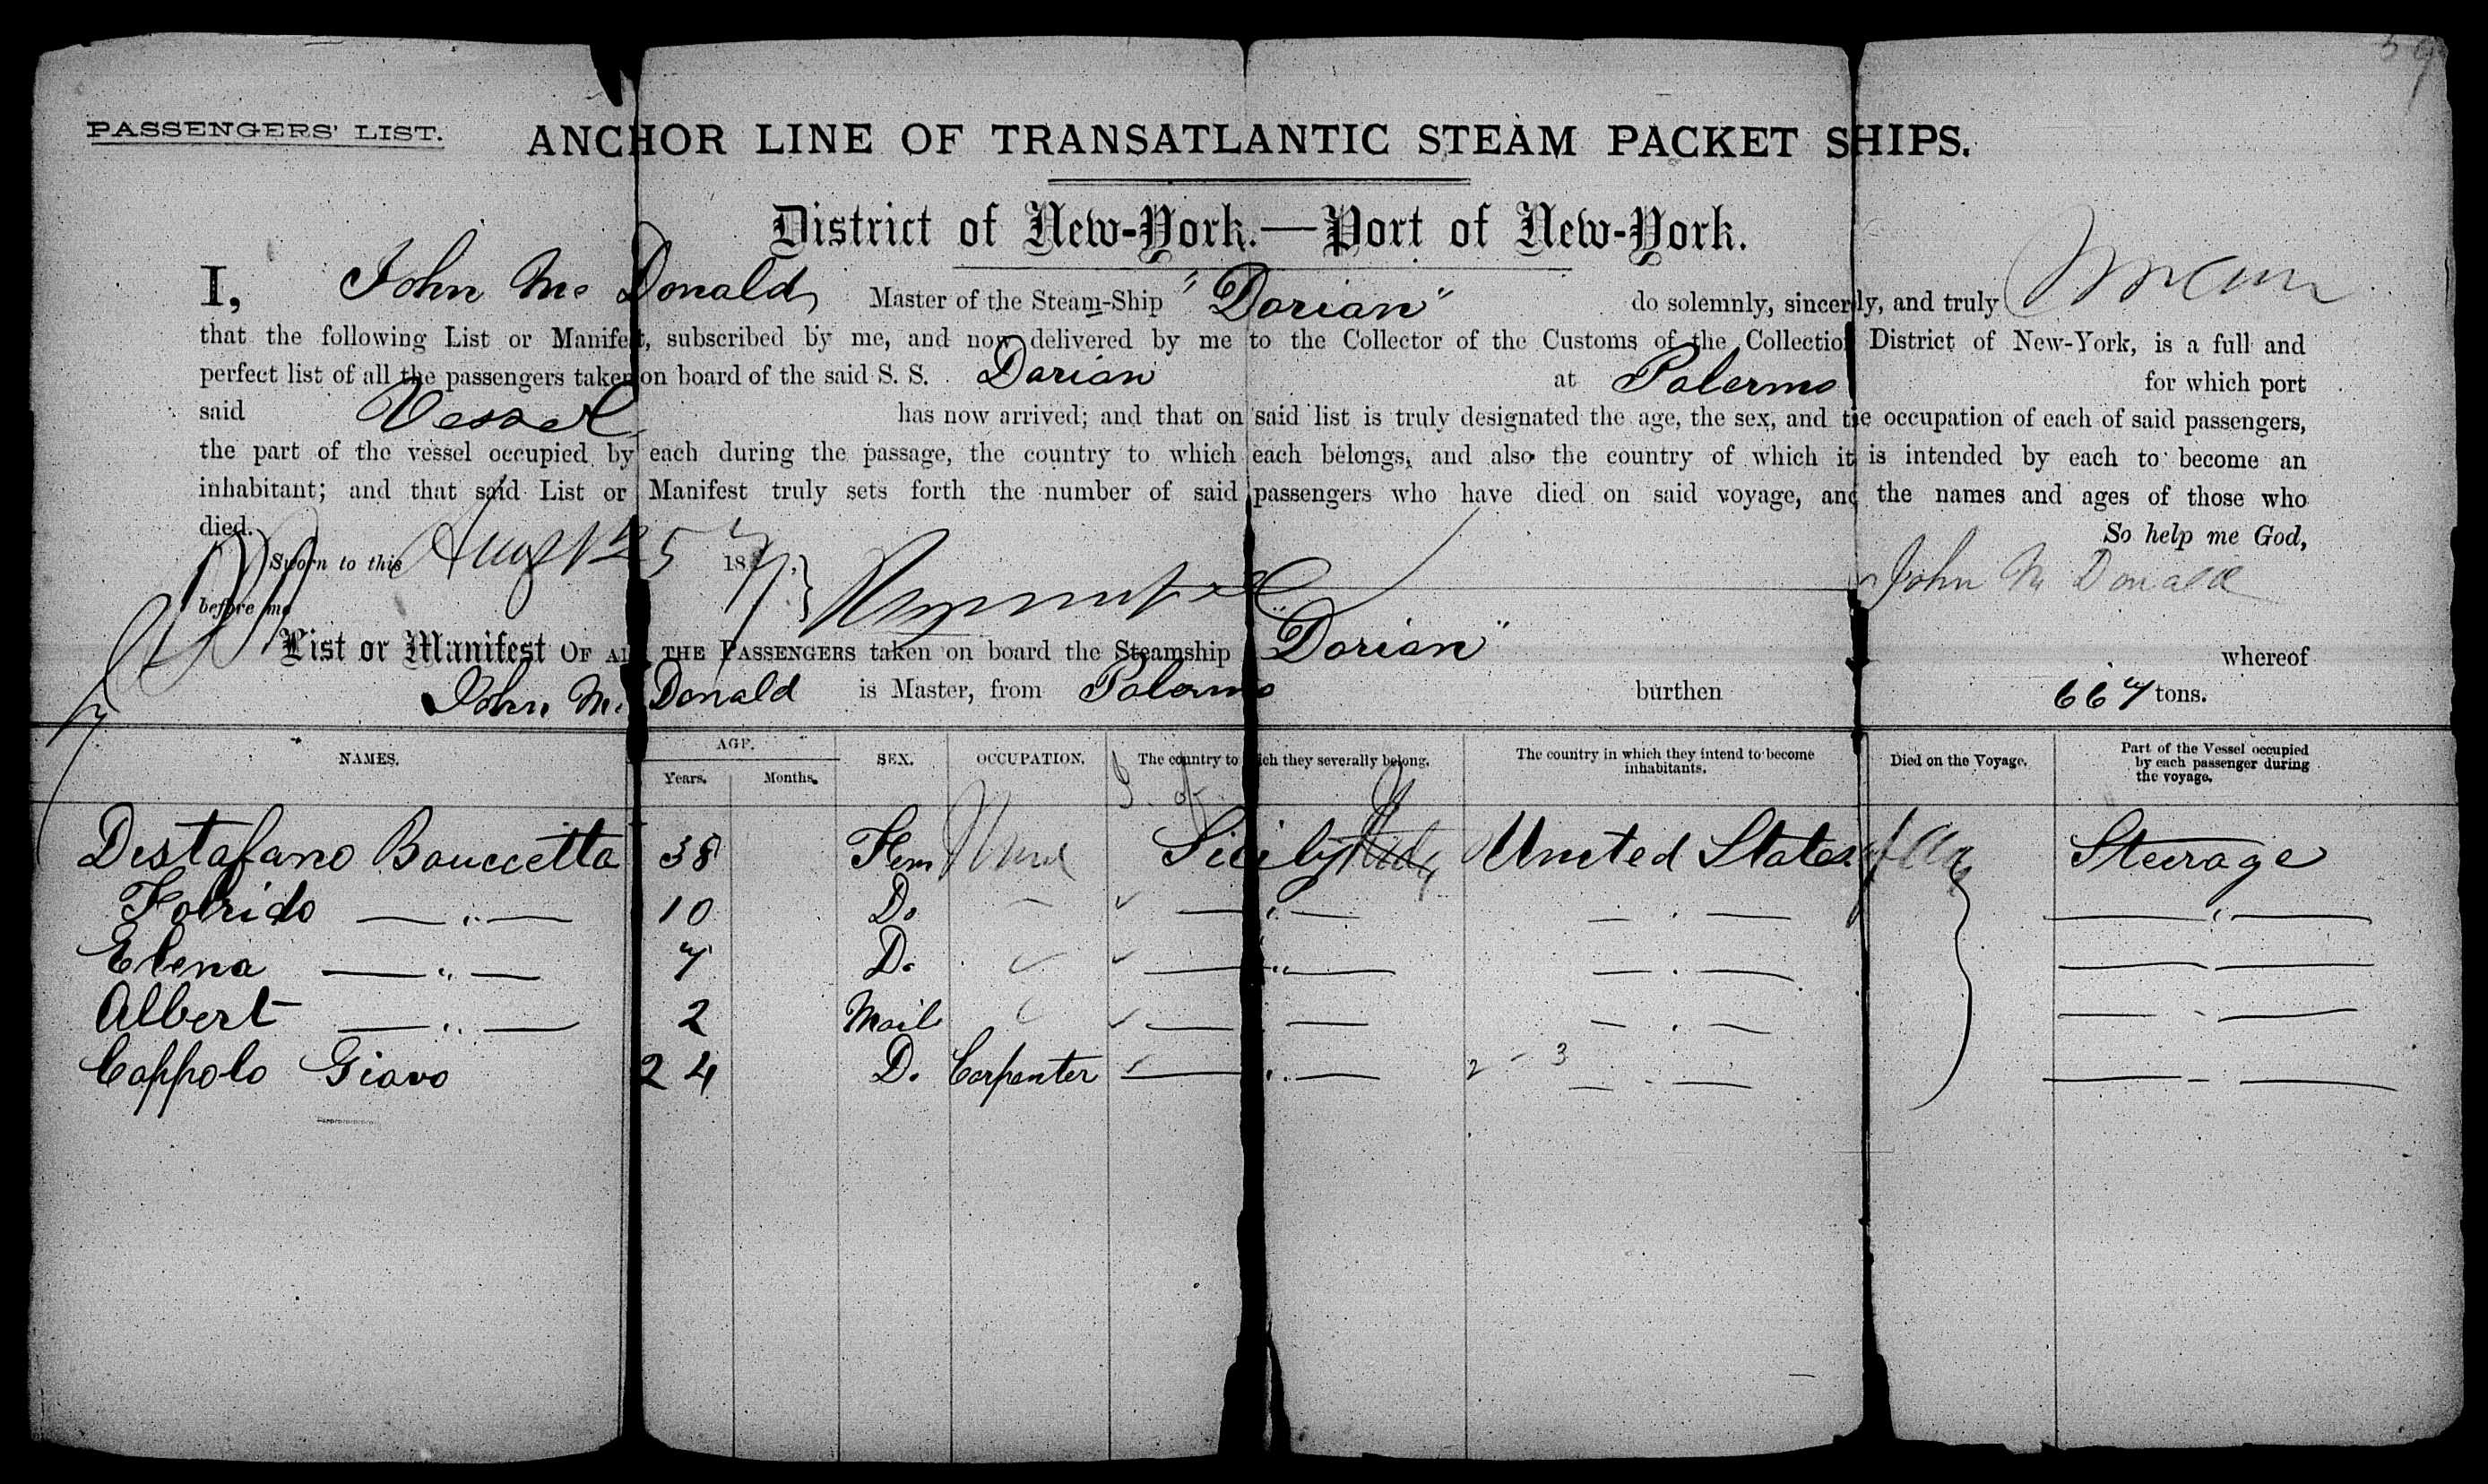 59
PASSENGERS' LIST. ANCHOR LINE OF TRANSATLANTIC STEAM PACKET SHIPS.
District of New-York.—Port of New-York.
I, John Mc Donald, Master of the Steam-Ship "Dorian" do solemnly, sincerely, and truly
that the following List or Manifest, subscribed by me, and now delivered by me to the Collector of the Customs of the Collection District of New-York, is a full and
perfect list of all the passengers taken on board of the said S. S. Dorian at Palermo for which port
said Vessel has now arrived; and that on said list is truly designated the age, the sex, and the occupation of each of said passengers,
the part of the vessel occupied by each during the passage, the country to which each belongs, and also the country of which it is intended by each to become an
inhabitant; and that said List or Manifest truly sets forth the number of said passengers who have died on said voyage, and the names and ages of those who
died. So help me God,
Sworn to this Augst 25 187
before me John Mc Donald
List or Manifest OF ALL THE PASSENGERS taken on board the Steamship "Dorian" whereof
John Mc Donald is Master, from Palermo burthen 667 tons.
NAMES. AGE. Years. Months. SEX. OCCUPATION. The country to which they severally belong. The country in which they intend to become inhabitants. Died on the Voyage. Part of the Vessel occupied by each passenger during the voyage.
Distafano Bouccetta 38 Fem None Sicily Italy United States Steerage
Folrido — " — 10 Do — " — — " — — " —
Elena — " — 7 Do — " — — " — — " —
Albert — " — 2 Mail — " — — " — — " —
Coppolo Giovo 24 Do Carpenter — " — 2 - 3 — " — — " —